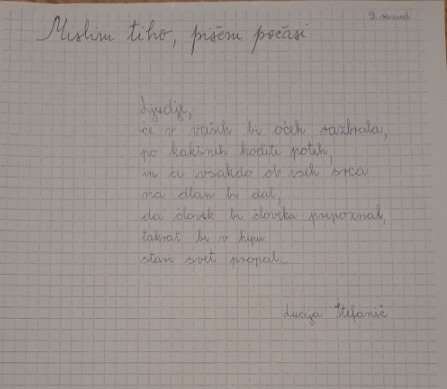 Mislim tiho, pišem počasi
Ljudje,
če v vaših bi očeh razbrala,
po kakšnih hodite poteh,
in če vsakdo od vseh srca
na dlan bi dal,
da človek bi človeka prepoznal,
takrat bi v hipu
stari svet propal...
Lucija Štefanič